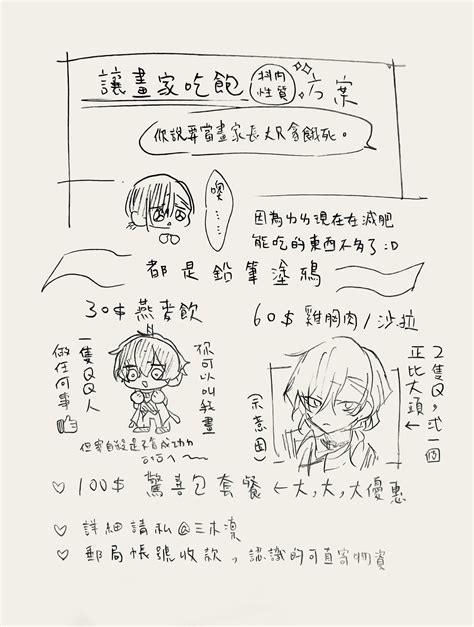 讓畫家吃飽
抖肉
性質
方案
你說要當畫家長大只會餓死。
噢……
因為ㄌㄌ現在在減肥
能吃的東西不多了:D
都是鉛筆塗鴉
30$燕麥飲
60$雞胸肉/沙拉
一隻QQ人
做任何事
你可以叫我畫
但害自殺是不會成功ㄉ
2隻Q，或一個
正比大頭←
(示意圖)
♡ 100$ 驚喜包套餐←大,大,大優惠
♡ 詳細請私@三木凜
♡ 郵局帳號收款，認識的可直寄物資